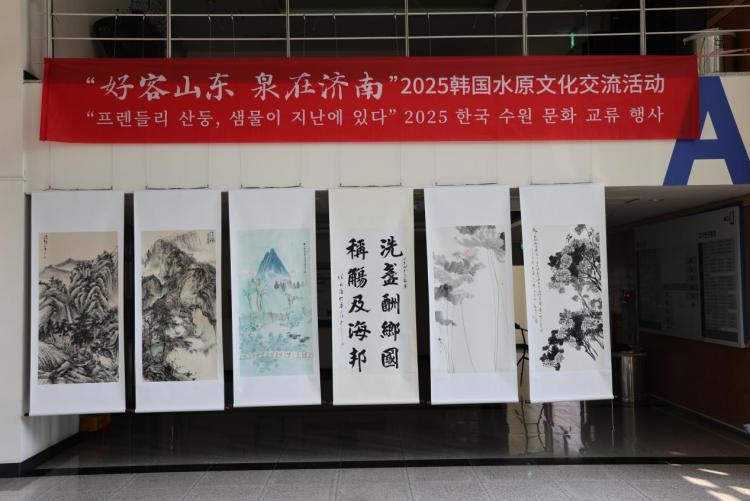 “好客山东 泉在济南”2025韩国水原文化交流活动
“프렌들리 산둥, 샘물이 지난에 있다” 2025 한국 수원 문화 교류 행사
A
洗盏酬鄉國
稱觴及海邦